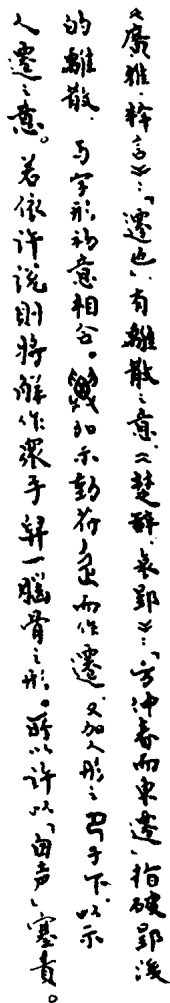 《廣雅·釋言》：「遷也」，有離散之意。《楚辭·哀郢》：「方仲春而東遷」指破郢後
的離散，與字形初意相合。加示動符辵而作遷，又加人形之㔾于下，以示
人遷之意。若依許說則將解作眾手舁一腦骨之形。所以許以「囟声」塞責。